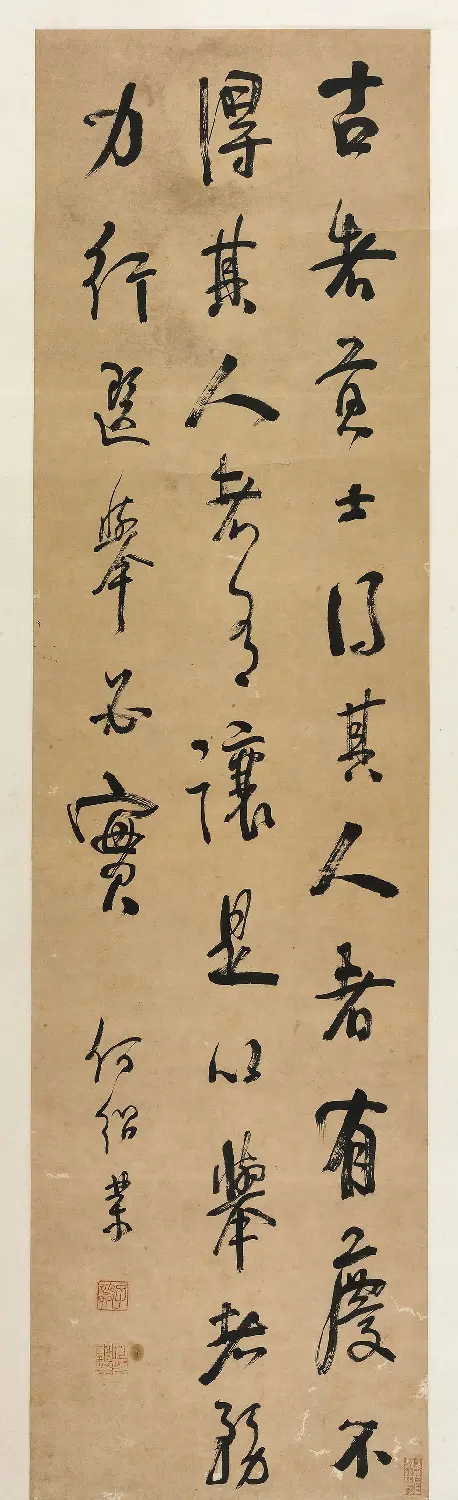 古者貢士得其人者有慶不
得其人者有讓是以舉者務
力行選舉必實
何紹業